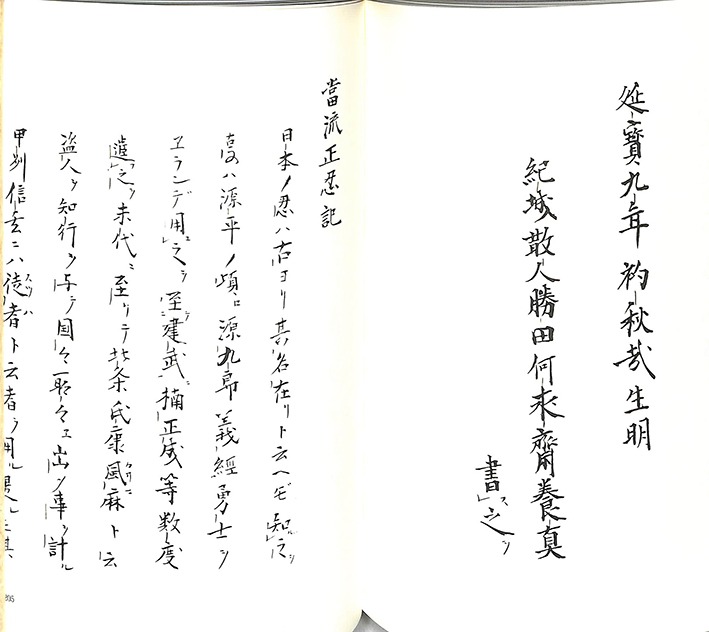 延寶九年初秋哉生明
紀城散人勝田何求齋養真
書ス之ヲ
當流正忍記
日本ノ忍ハ古ヨリ其名在リト云ヘドモ知之ヲ
事ハ源平ノ頃ニ源九郎義經勇士ヲ
エランデ用之ヲ至建武ニ楠正成等数度
遣之ヲ末代ニ至リテ北条氏康風麻ト云
盗人ヲ知行ヲ与テ国々所々エ出シ事ヲ計ル
甲刕信玄ニハ徒者ト云者ヲ用ル